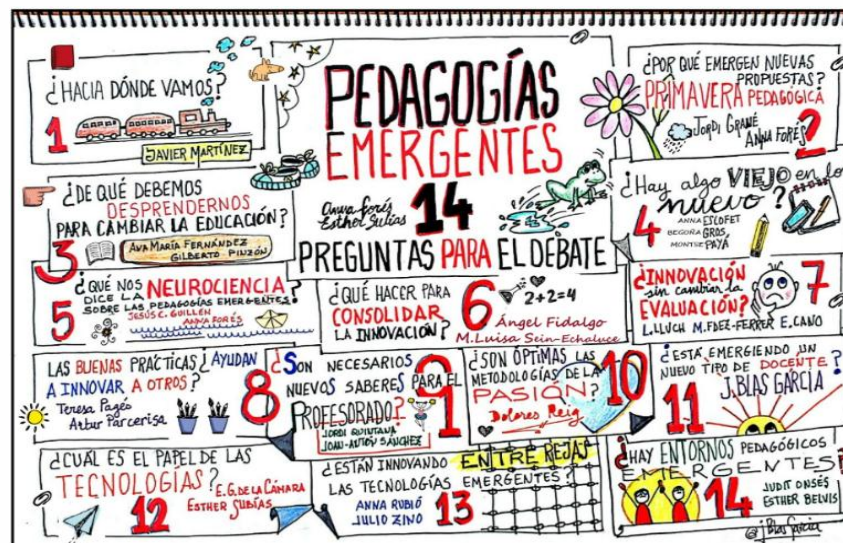 PEDAGOGÍAS
EMERGENTES
Anna Forés
Esther Subías
14
PREGUNTAS PARA EL DEBATE
¿HACIA DÓNDE VAMOS?
1
JAVIER MARTÍNEZ
¿POR QUÉ EMERGEN NUEVAS
PROPUESTAS?
PRIMAVERA PEDAGÓGICA
JORDI GRANÉ
ANNA FORÉS
2
¿DE QUÉ DEBEMOS
DESPRENDERNOS
PARA CAMBIAR LA EDUCACIÓN?
3
AVA MARÍA FERNÁNDEZ
GILBERTO PINZÓN
¿Hay algo VIEJO en lo
nuevo?
4
ANNA ESCOFET
BEGOÑA GROS
MONTSE PAYÁ
5
¿QUÉ NOS
DICE LA NEUROCIENCIA
SOBRE LAS PEDAGOGÍAS EMERGENTES?
JESÚS C. GUILLÉN
ANNA FORÉS
¿QUÉ HACER PARA
CONSOLIDAR
LA INNOVACIÓN?
6
2+2=4
Ángel Fidalgo
M. Luisa Sein-Echaluce
¿INNOVACIÓN
sin cambiar la
EVALUACIÓN?
7
L. LLUCH M. FDEZ-FERRER E. CANO
LAS BUENAS PRÁCTICAS ¿AYUDAN
A INNOVAR A OTROS?
8
Teresa Pagés
Artur Parcerisa
¿SON NECESARIOS
NUEVOS SABERES PARA EL
PROFESORADO?
9
JORDI QUINTANA
JOAN-ANTON SÁNCHEZ
¿SON ÓPTIMAS LAS
METODOLOGÍAS DE LA
PASIÓN?
10
Dolores Reig
¿ESTÁ EMERGIENDO UN
NUEVO TIPO DE DOCENTE?
11
J. BLAS GARCÍA
¿CUÁL ES EL PAPEL DE LAS
TECNOLOGÍAS?
12
E.G. DE LA CÁMARA
ESTHER SUBÍAS
¿ESTÁN INNOVANDO ENTRE REJAS
LAS TECNOLOGÍAS EMERGENTES?
ANNA RUBIÓ
JULIO ZINO
13
¿HAY ENTORNOS PEDAGÓGICOS
EMERGENTES?
14
JUDIT ONSÉS
ESTHER BELVIS
@jblasgarcia